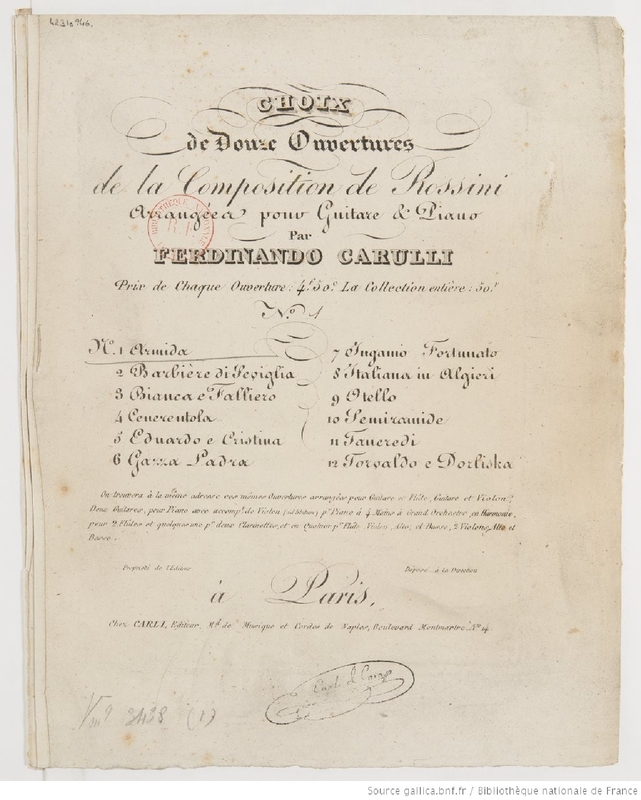 4231a946.
CHOIX
de Douze Ouvertures
de la Composition de Rossini
Arrangées pour Guitare & Piano
Par
FERDINANDO CARULLI
Prix de Chaque Ouverture: 4f 50c La Collection entière: 50f
No. 1
No. 1 Armida
2 Barbière di Seviglia
3 Bianca e Falliero
4 Cenerentola
5 Eduardo e Cristina
6 Gazza Ladra
7 Inganno Fortunato
8 Italiana in Algieri
9 Otello
10 Semiramide
11 Tancredi
12 Torvaldo e Dorliska
On trouvera à la même adresse ces mêmes Ouvertures arrangées pour Guitare et Flûte, Guitare et Violon,
Deux Guitares, pour Piano avec accompt. de Violon (ad libitum) pr. Piano à 4 Mains à Grand Orchestre, en Harmonie,
pour 2 Flûtes et quelques une pr. deux Clarinettes, et en Quatuor pr. Flûte, Violon, Alto, et Basse, 2 Violons, Alto et
Basse.
Propriété de l'Editeur
Déposé à la Direction
à Paris,
Chez CARLI, Editeur, Md. de Musique et Cordes de Naples, Boulevard Montmartre No. 14
Carli et Comp
Vm9 3438 (1)
Source gallica.bnf.fr / Bibliothèque nationale de France